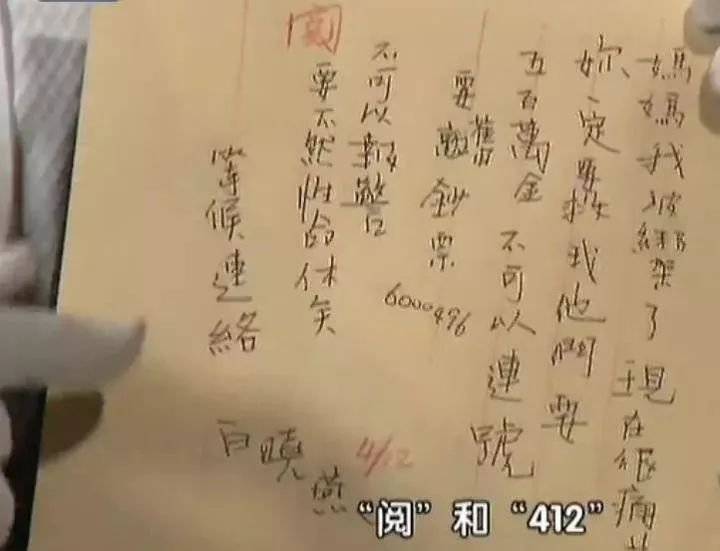 媽媽我被綁架了現在很痛苦
妳一定要救我他們要
五百萬美金不可以連號
要舊鈔票
6000496
不可以報警
要不然性命休矣
閱
等候連絡
白曉燕
4/12
“阅”和“412”